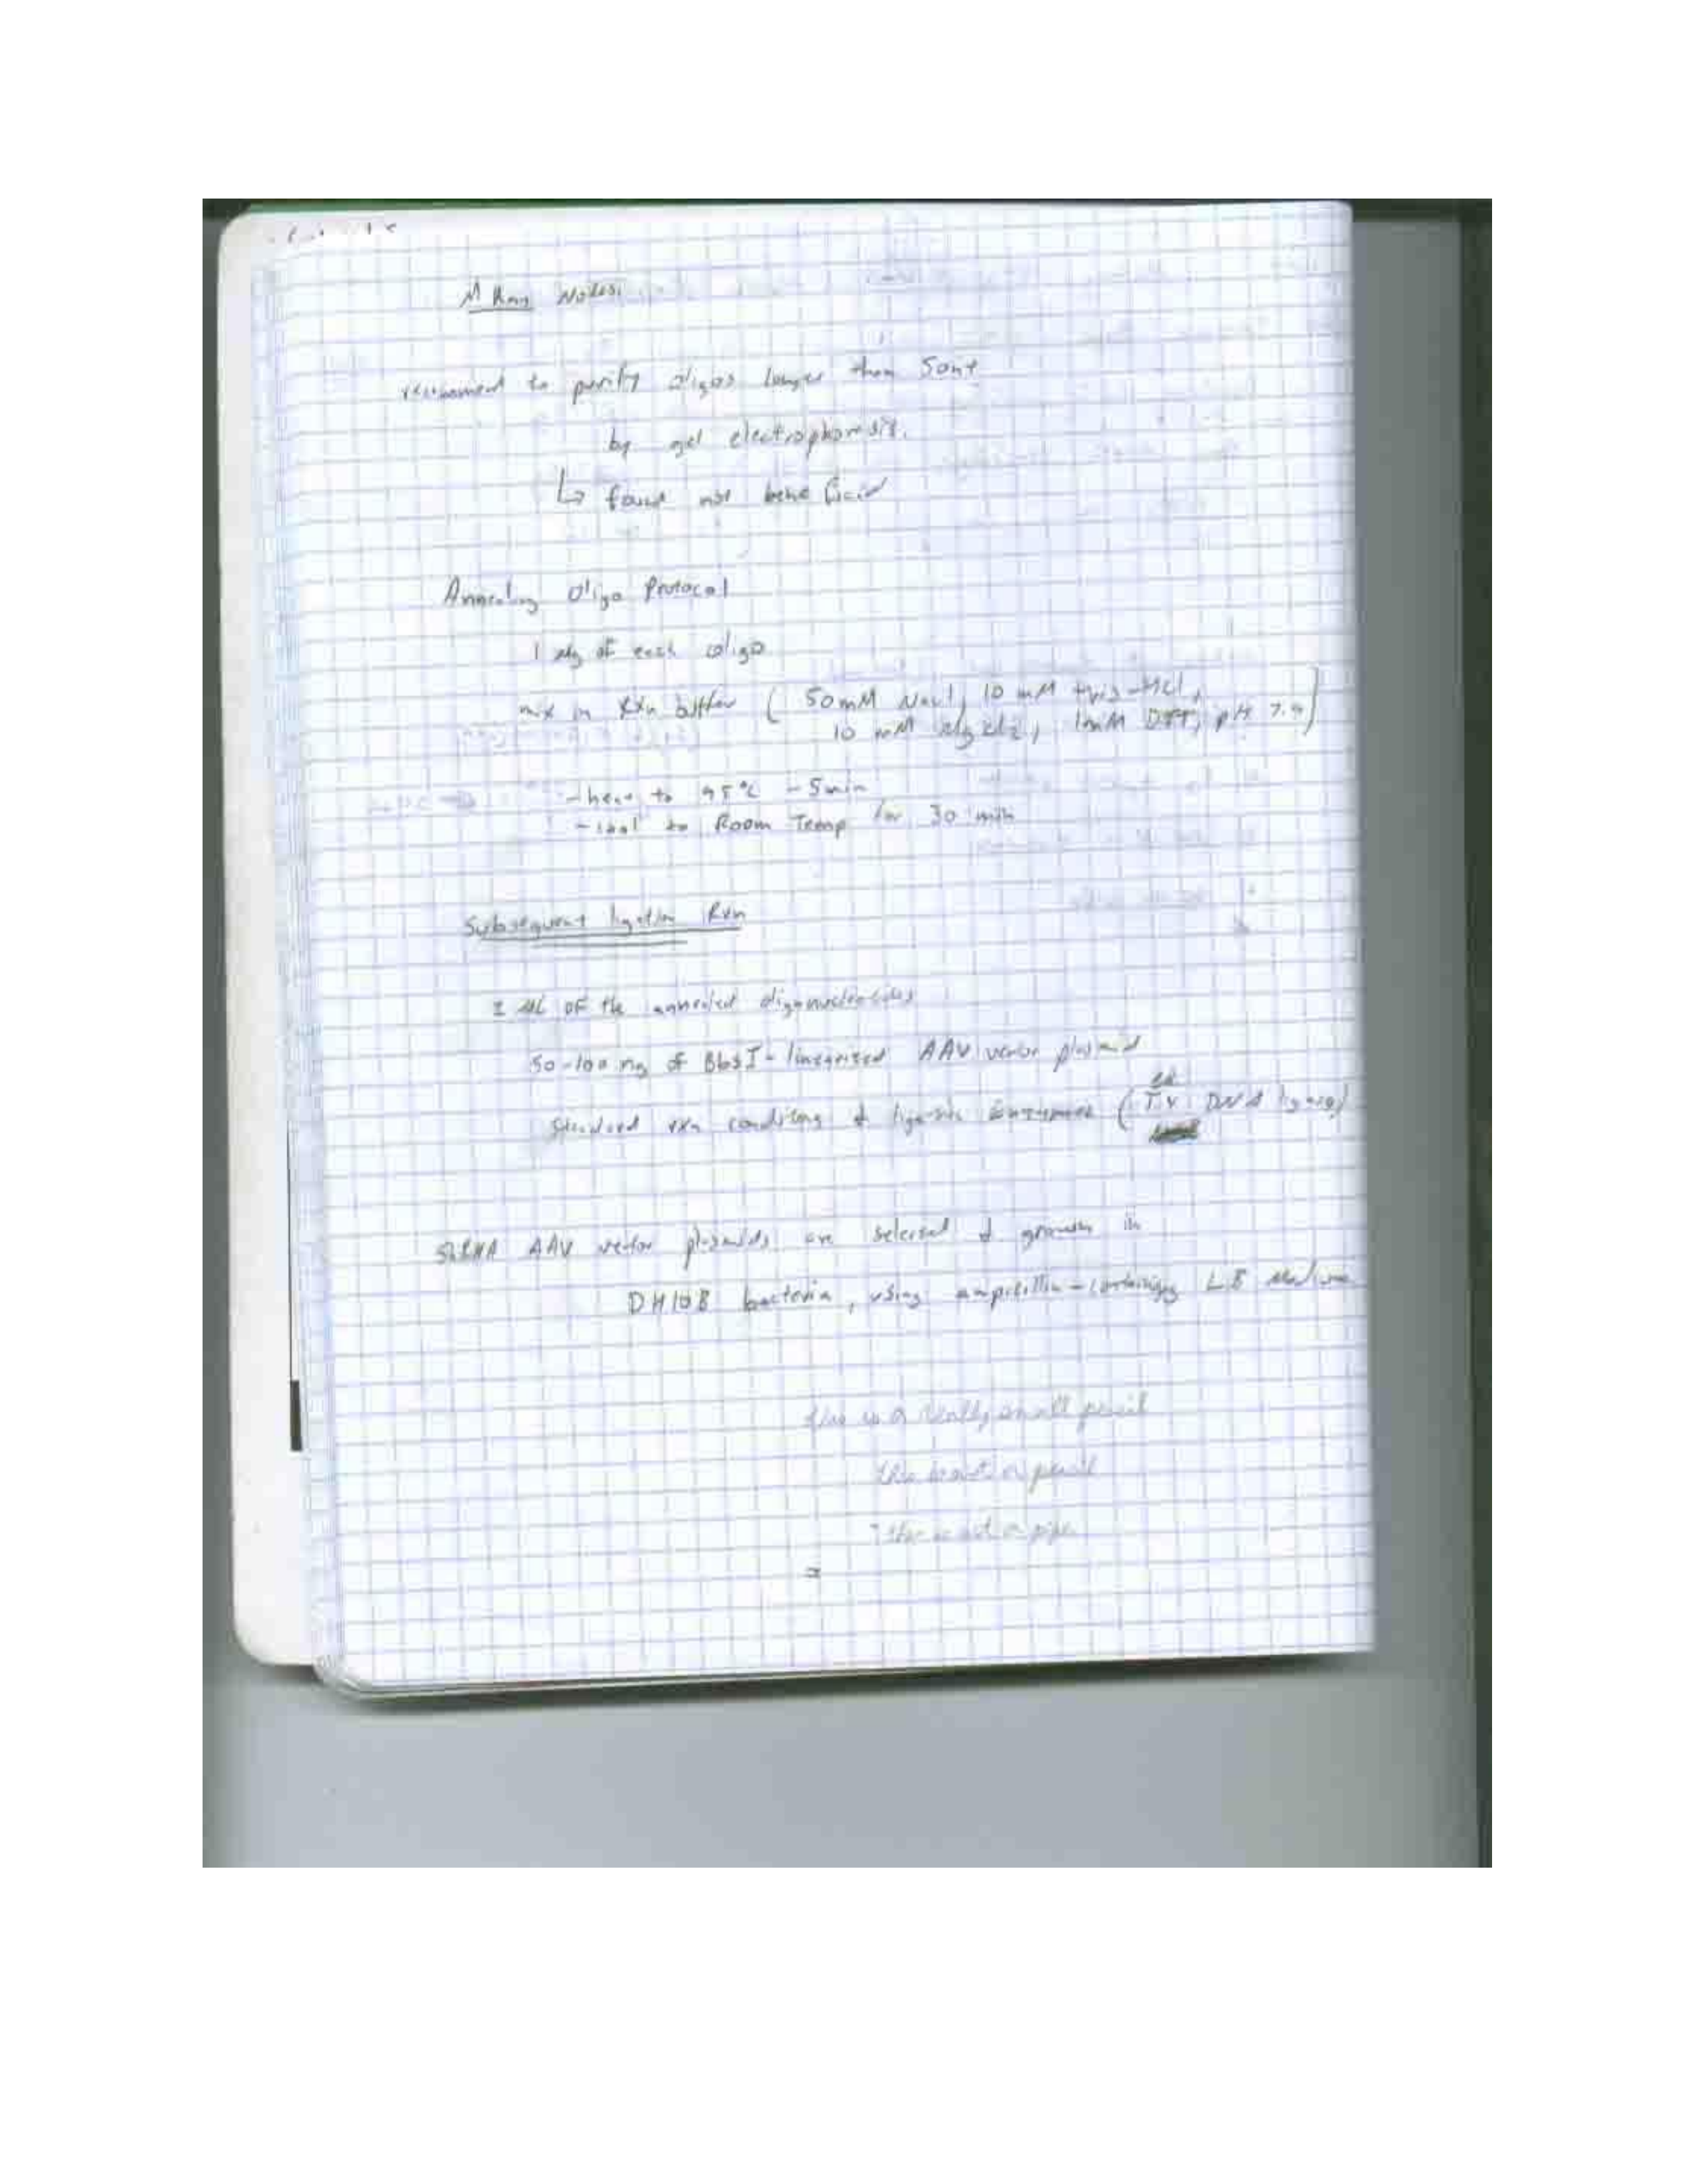 M Kay Notes:
recommend to purify oligos longer than 50nt
by gel electrophoresis.
↳ found not beneficial
Annealing Oligo Protocol
1 µg of each oligo
mix in rxn buffer ( 50mM NaCl, 10 mM tris-HCl,
10 mM MgCl2, 1mM DTT, pH 7.9)
- heat to 95°C - 5min
- cool to Room Temp for 30 min
Subsequent ligation Rxn
1 µL OF the annealed oligonucleotides
50-100 ng of BbsI-linearized AAV vector plasmid
Standard rxn conditions & ligase (T4 DNA ligase)
ShRNA AAV vector plasmids are selected & grown in
DH10B bacteria, using ampicillin-containing LB medium
this is a really small pencil
this is not a pencil
this is not a pipe